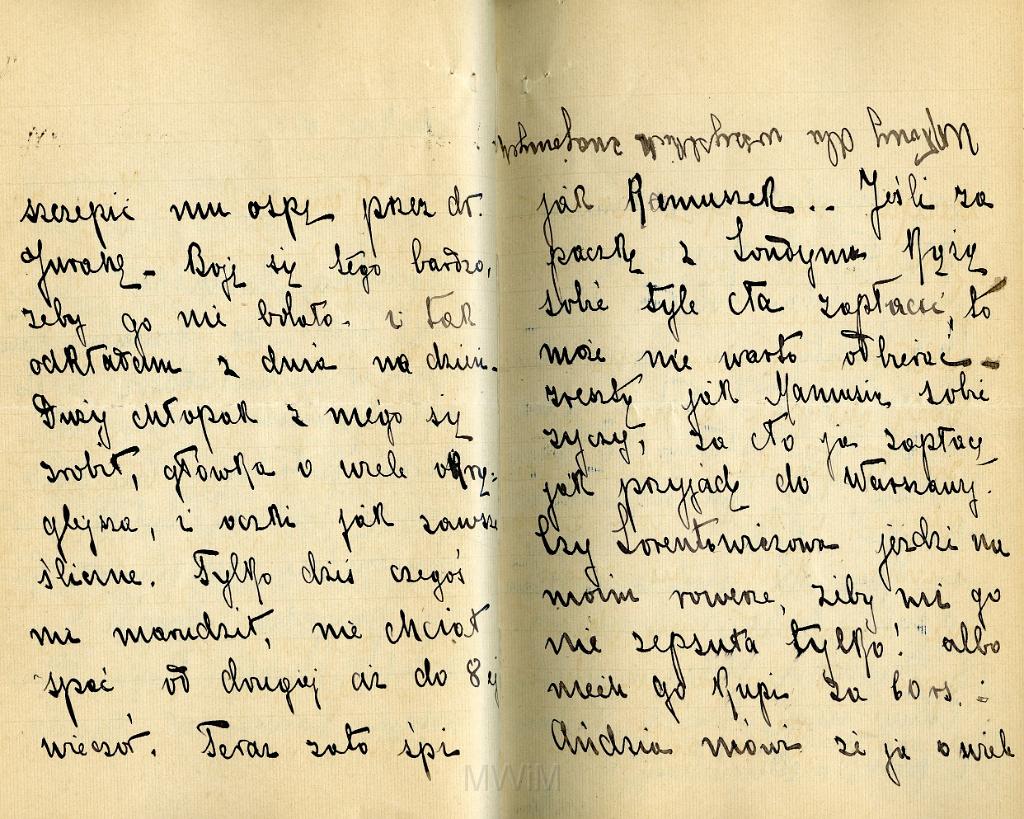 szczepić mu ospę przez dr.
Jurakę – Boję się tego bardzo,
żeby go nie bolało. i tak
odkładam z dnia na dzień.
Duży chłopak z niego się
zrobił, główka o wiele okrą=
glejsza, i oczki jak zawsze
śliczne. Tylko dziś czegoś
mi marudził, nie chciał
spać od drugiej aż do 8ej
wieczór. Teraz zato śpi
Ukłony dla wszystkich znajomych.
jak Ramuszek.. Jeśli za
paczkę z Londynu każą
sobie tyle cła zapłacić, to
może nie warto odbierać –
zresztą jak Mamusia sobie
życzy, za cło ja zapłacę
jak przyjadę do Warszawy.
Czy Lorentowiczowa jeździ na
moim rowerze, żeby mi go
nie zepsuła tylko! albo
niech go kupi za 60 rs. :
Andzia mówi że ja o wiele
MWiM